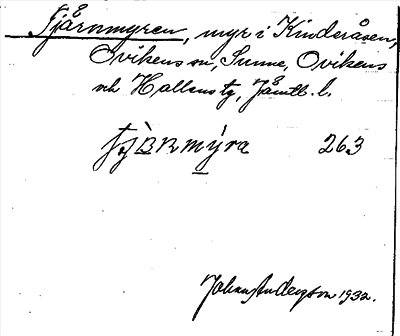 Tjärnmyren, myr i Kinderåsen,
Ovikens sn, Sunne, Ovikens
och Hallens tg, Jämtl. l.
tjännmýra 263
Johan Anderzson 1932.